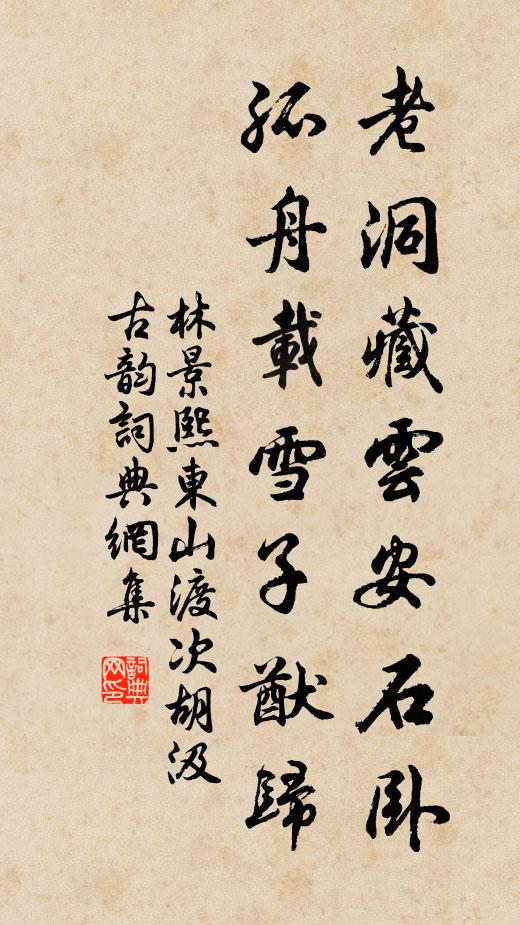 老洞藏雲安石卧
孤舟載雪子猷歸
林景熙東山渡次胡汲
古韵詞典網集
詞典網印